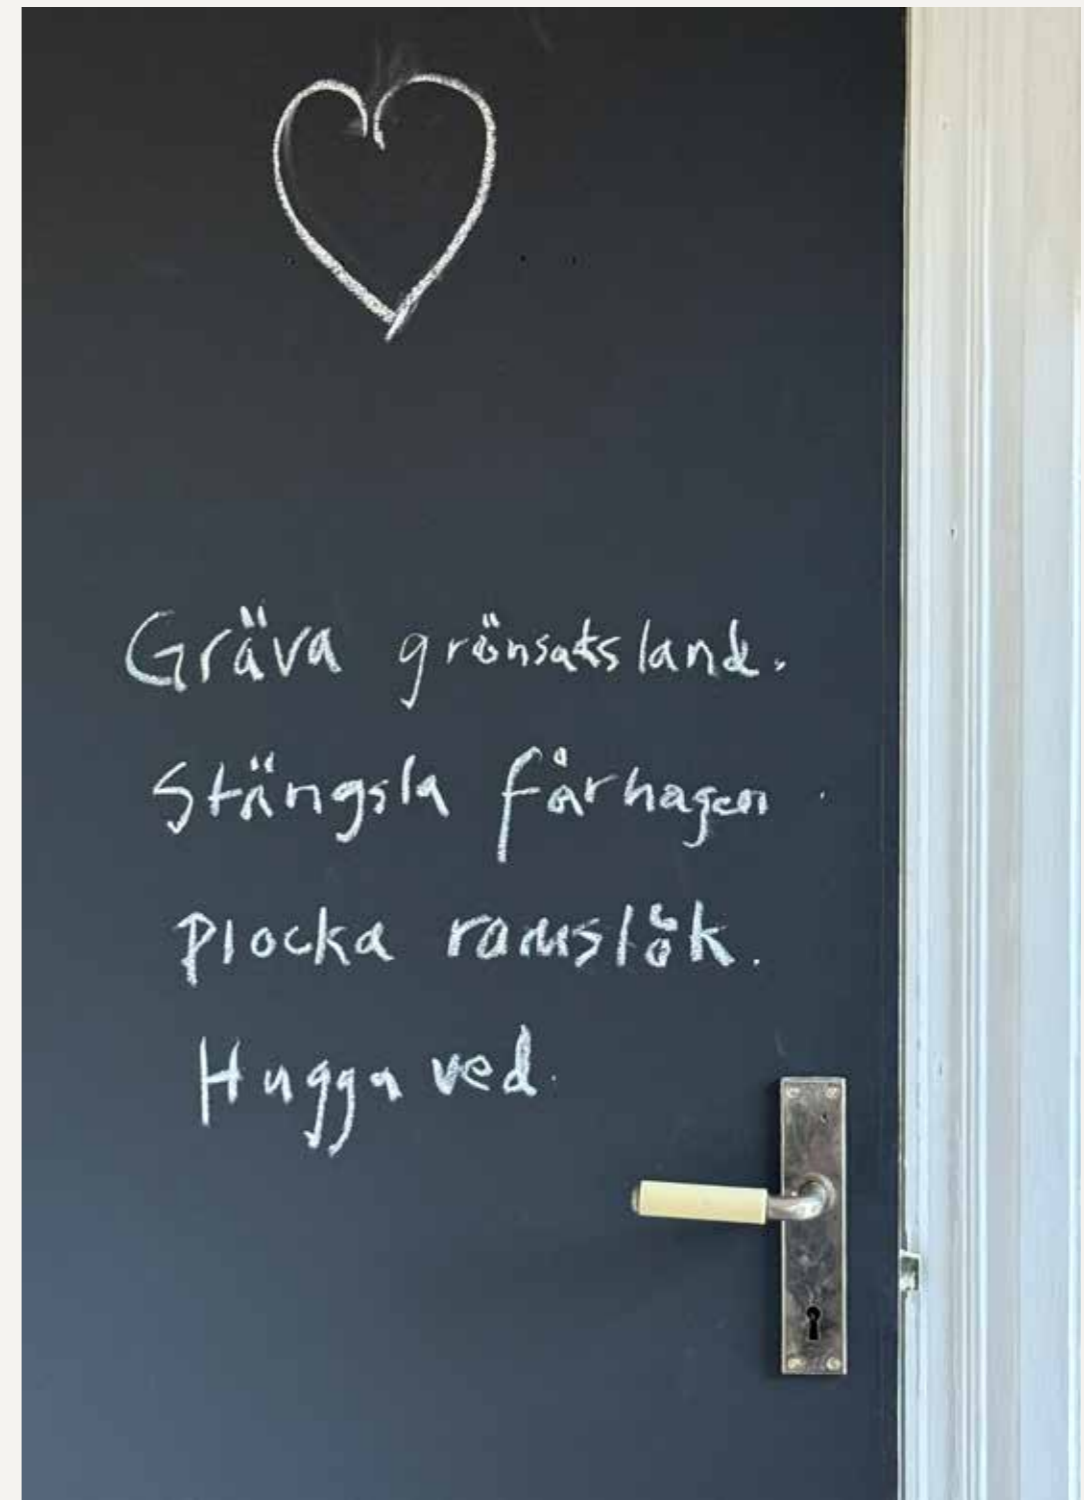 Gräva grönsaksland.
Stängsla fårhagen.
Plocka ramslök.
Hugga ved.